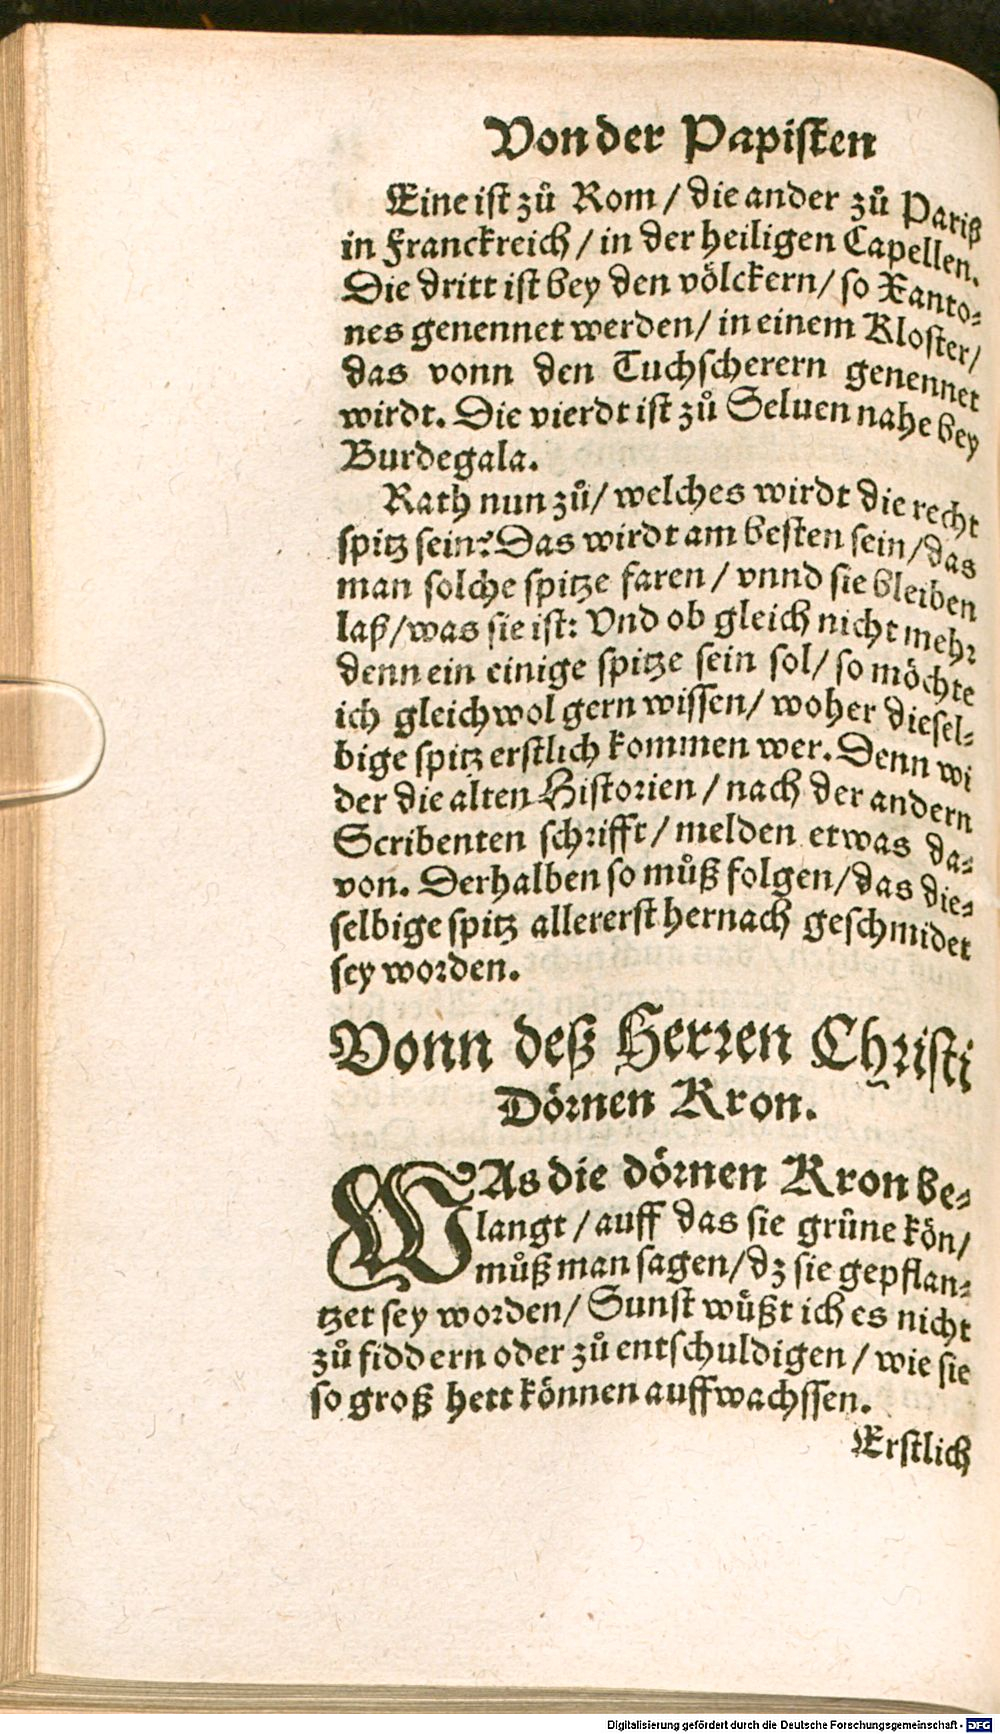 Von der Papisten
Eine ist zů Rom / die ander zů Pariß
in Franckreich / in der heiligen Capellen.
Die dritt ist bey den völckern / so Xanto-
nes genennet werden / in einem Kloster /
das vonn den Tuchscherern genennet
wirdt. Die vierdt ist zů Seluen nahe bey
Burdegala.
Rath nun zů / welches wirdt die recht
spitz sein? Das wirdt am besten sein / das
man solche spitze faren / vnnd sie bleiben
laß / was sie ist: Vnd ob gleich nicht mehr
denn ein einige spitze sein sol / so möchte
ich gleichwol gern wissen / woher diesel-
bige spitz erstlich kommen wer. Denn wi
der die alten Historien / nach der andern
Scribenten schrifft / melden etwas da-
von. Derhalben so můß folgen / das die-
selbige spitz allererst hernach geschmidet
sey worden.
Vonn deß Herren Christi
Dörnen Kron.
WAs die dörnen Kron be-
langt / auff das sie grůne kön /
můß man sagen / dz sie gepflan-
tzet sey worden / Sunst wůßt ich es nicht
zů fiddern oder zů entschuldigen / wie sie
so groß hett können auffwachssen.
Erstlich
Digitalisierung gefördert durch die Deutsche Forschungsgemeinschaft - DFG